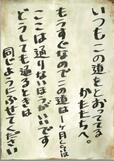 いつもこの道をとおってる
かたたちへ。
もうすぐなのでこの道は1ヶ月くらいは
ここは通りないほうがいいです
どうしても通るときは
同じようにふせてください